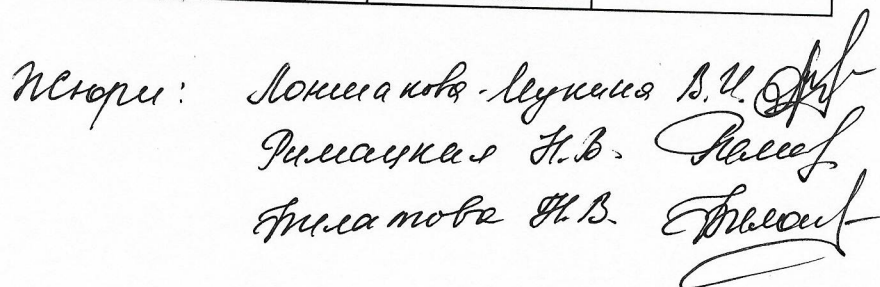 Жюри: Лоншакова-Мукина В.И.
Римацкая Н.В.
Филатова Н.В.